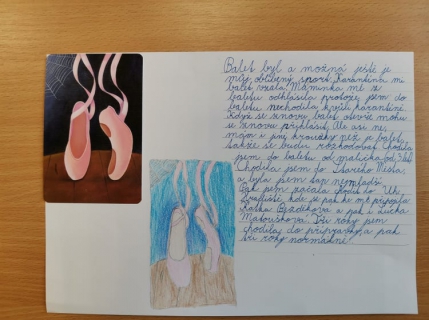 Balet byl a možná ještě je
můj oblíbený sport. Karanténa mi
balet vzala. Maminka mě z
baletu odhlásila protože jsem do
baletu nechodila kvůli karanténě.
Když se znovu balet otevře mohu
se znovu přihlásit. Ale asi ne,
mám i jiné kroužky než je balet,
takže se budu rozhodovat. Chodila
jsem do baletu od malička od 3 let.
Chodila jsem do Starého Města
a byla jsem tam nejmladší.
Pak jsem začala chodit do Uh.
Hradiště, kde je pak ke mě připojila
Katka Bezděková a pak i Lucka
Matoušková. Tři roky jsem
chodila do přípravky a pak
tři roky normálně.